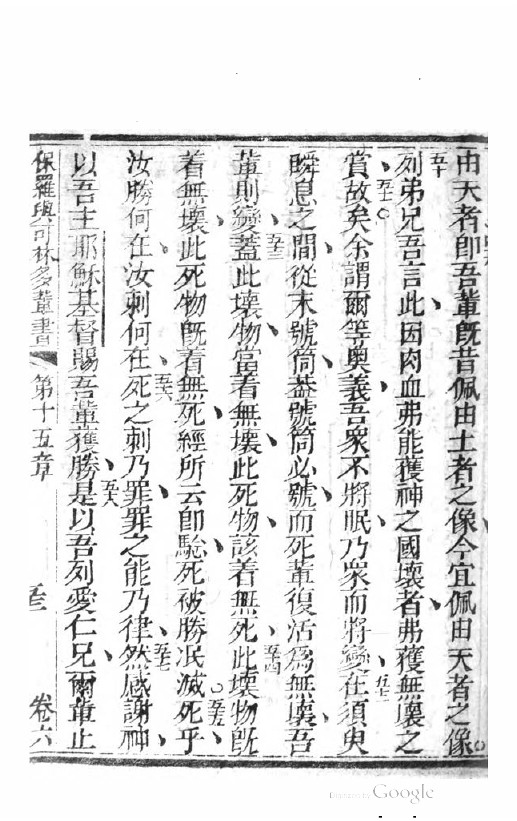 由天者卽吾輩旣昔佩由土者之像今宜佩由天者之像
五十
列弟兄吾言此因肉血弗能獲神之國壞者弗獲無壞之
五一
賞故矣余謂爾等奧義吾衆不將眠乃衆而將變在須臾
五二
瞬息之間從末號筒蓋號筒必號而死輩復活爲無壞吾
輩則變蓋此壞物當着無壞此死物該着無死此壞物旣
五三
五四
着無壞此死物旣着無死經所云卽騐死被勝泯滅死乎
五五
汝勝何在汝刺何在死之刺乃罪罪之能乃律然感謝神
五六
五七
以吾主耶穌基督賜吾輩獲勝是以吾列愛仁兄爾輩止
五八
保羅與可林多輩書 第十五章 卷六
Digitized by Google